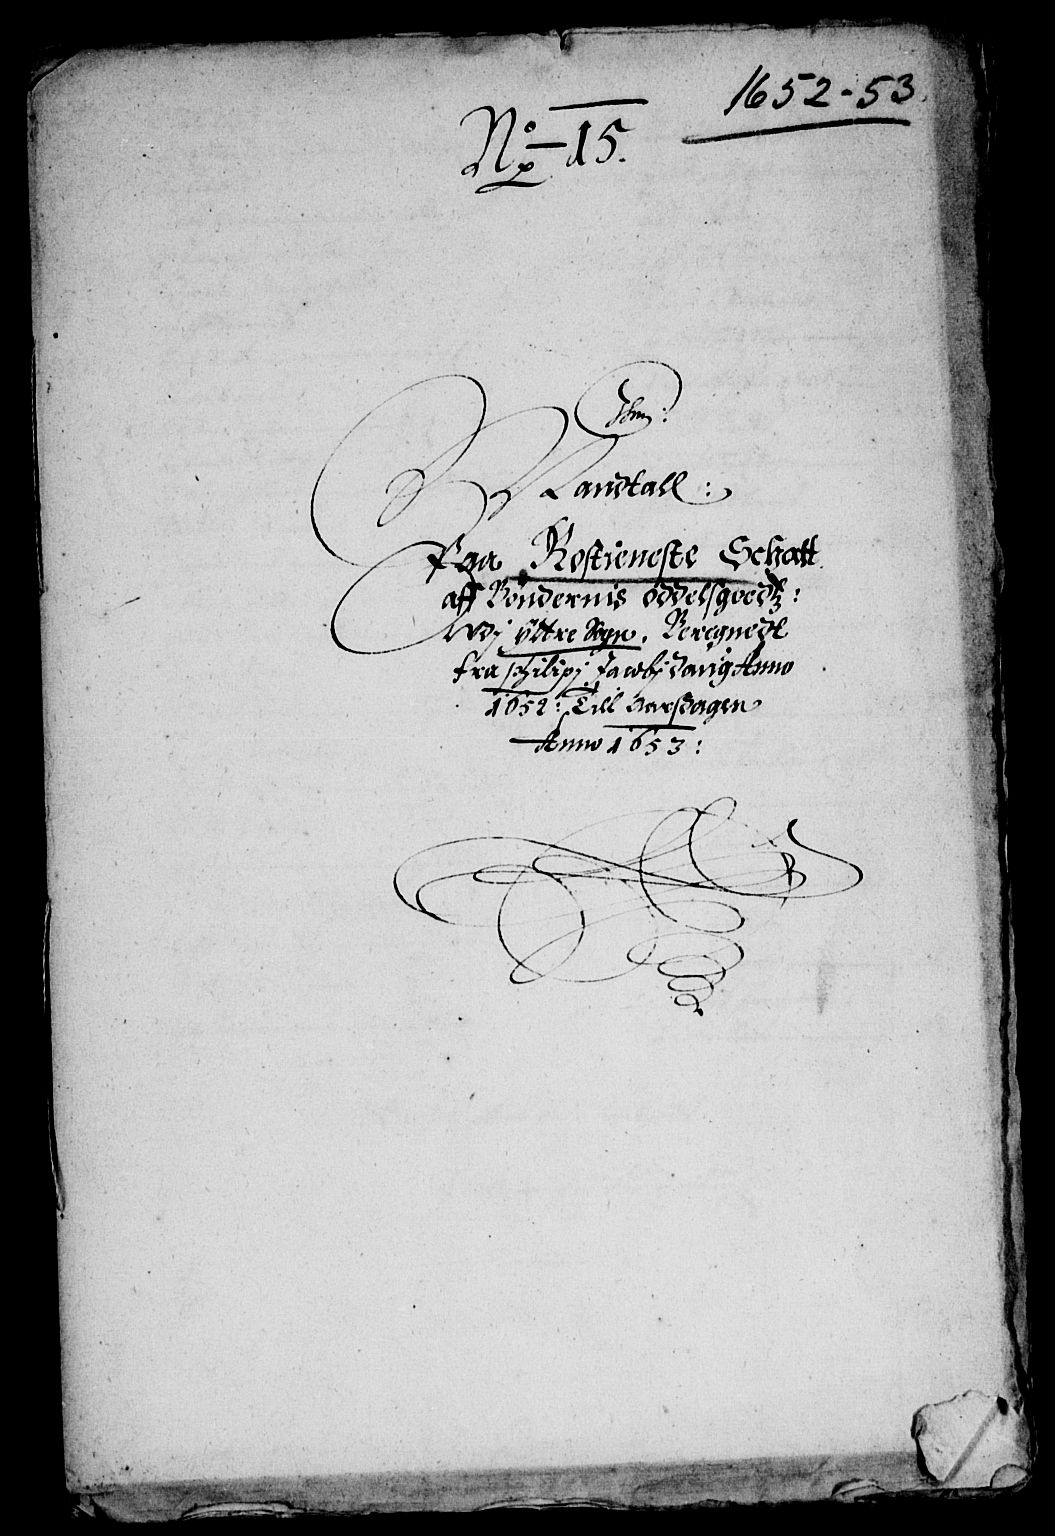 1652-53
No 15.
Mandtall:
Paa Rostieneste Schatt
aff Bøndernis oddelsgoedtz:
Vdj Yttre Sogn. Beregnedt
fra Philipj Jacobj daug Anno
1652: Till Aarsdagen
Anno 1653: